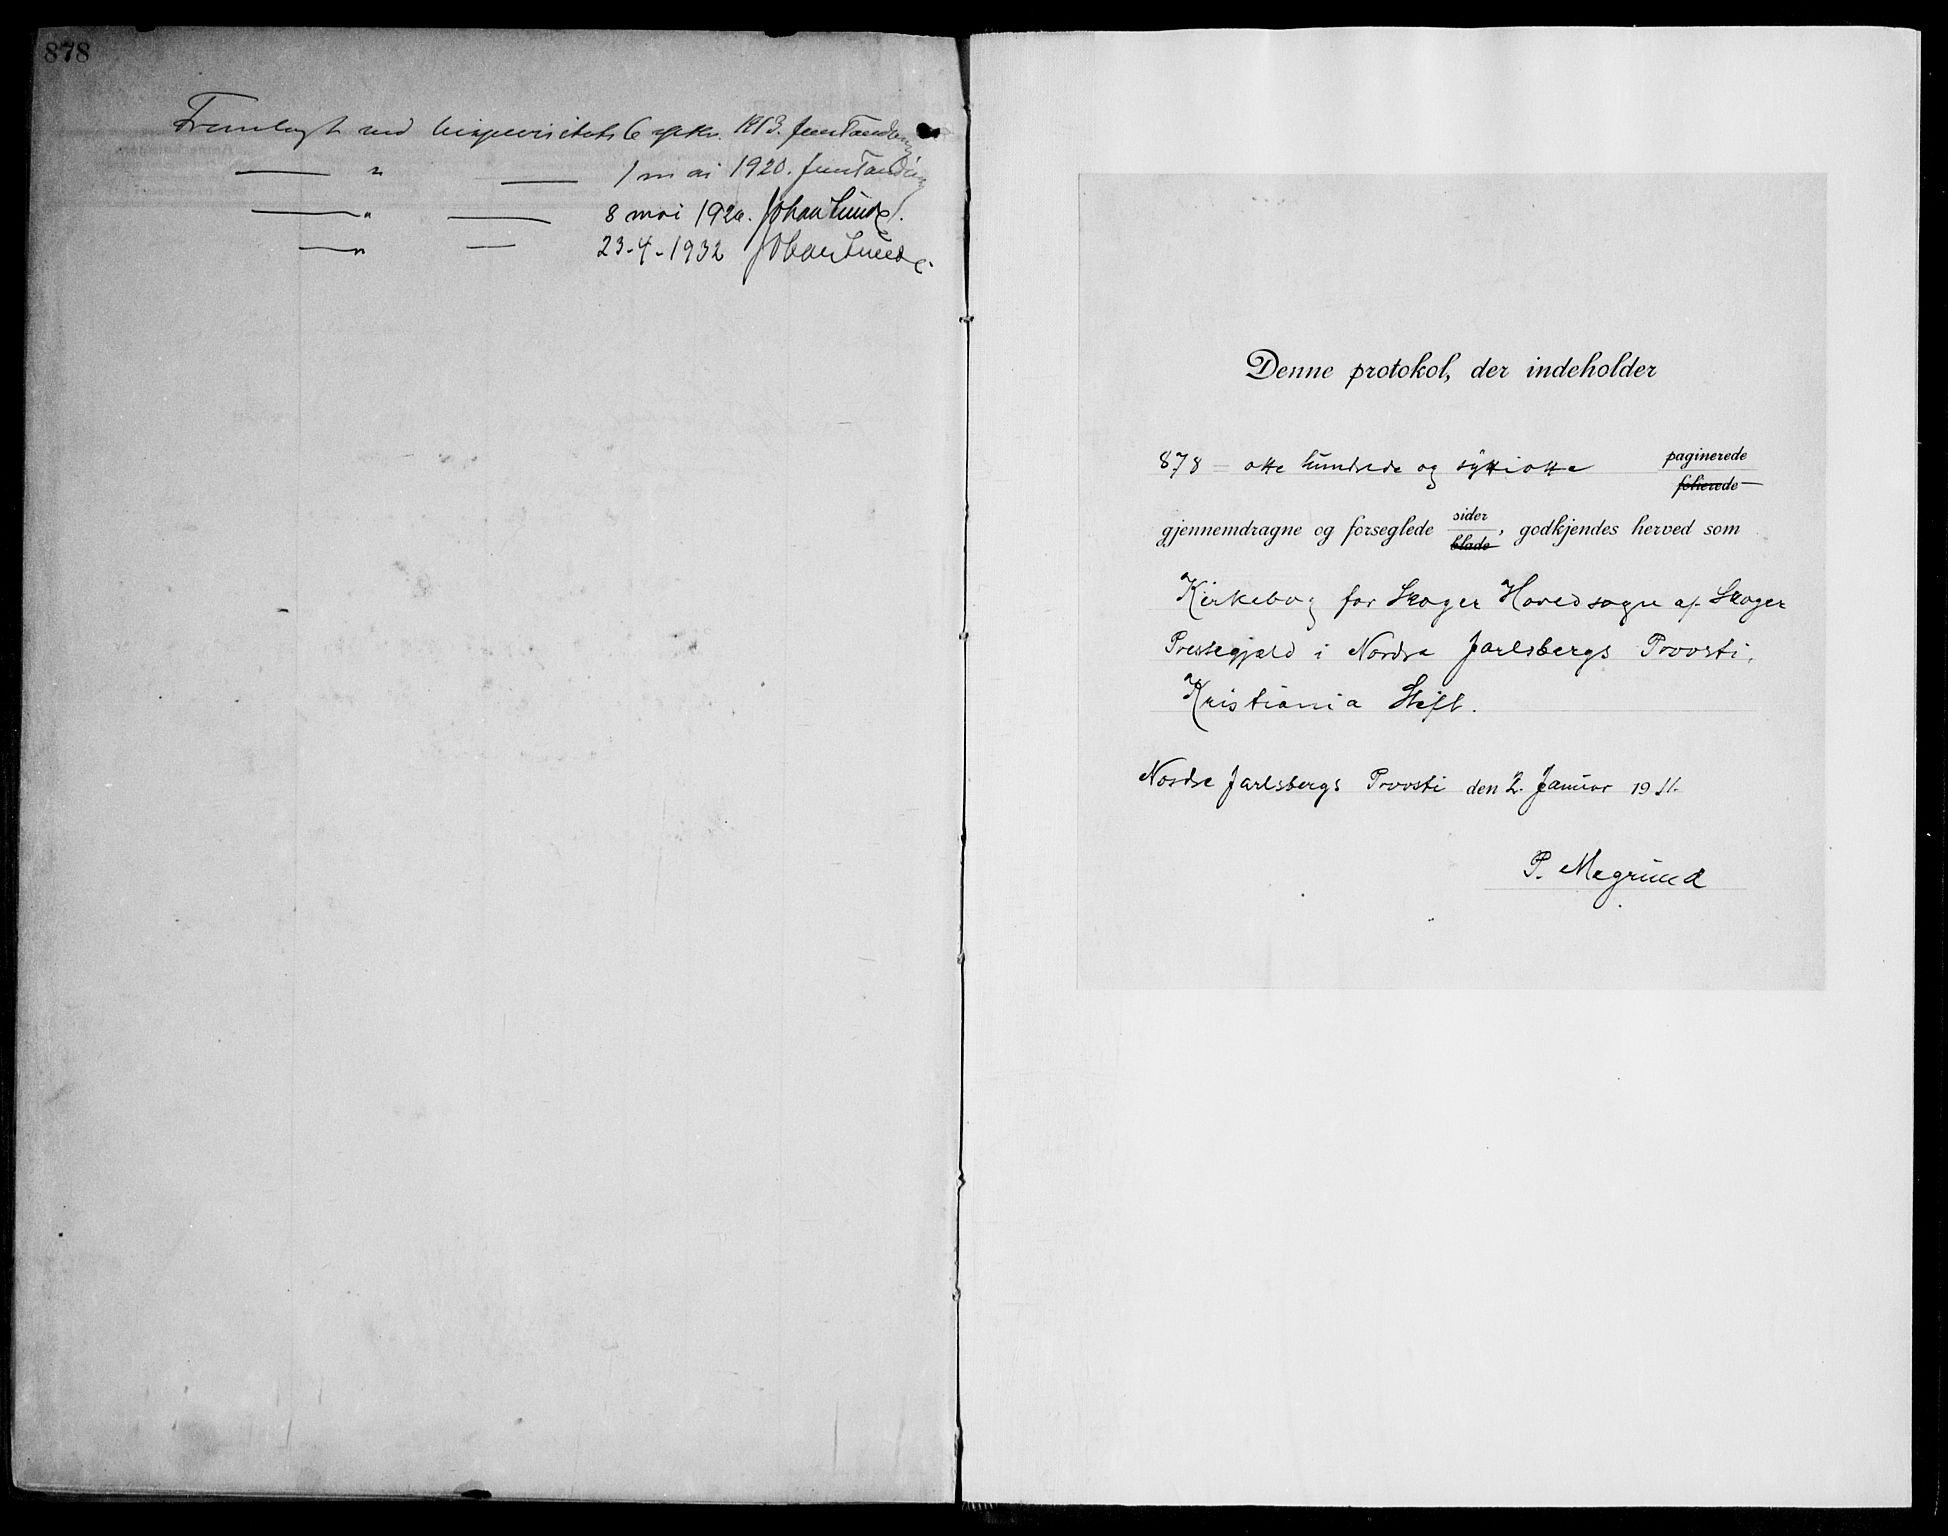 878
Fremlagt ved bispevisitats 6 septbr. 1913. Jens Tandberg
— " — 1 mai 1920. Jens Tandberg
— " — 8 mai 1926. Johan Lunde.
— " — 23-4-1932 Johan Lunde.
Denne protokol, der indeholder
878 = otte hundrede og sytti otte paginerede
folierede
gjennemdragne og forseglede sider
blade, godkjendes herved som
Kirkebog for Skoger Hovedsogn af Skoger
Prestegjæld i Nordre Jarlsbergs Provsti,
Kristiania Stift.
Nordre Jarlsbergs Provsti den 2. Januar 1911.
P. Magrund